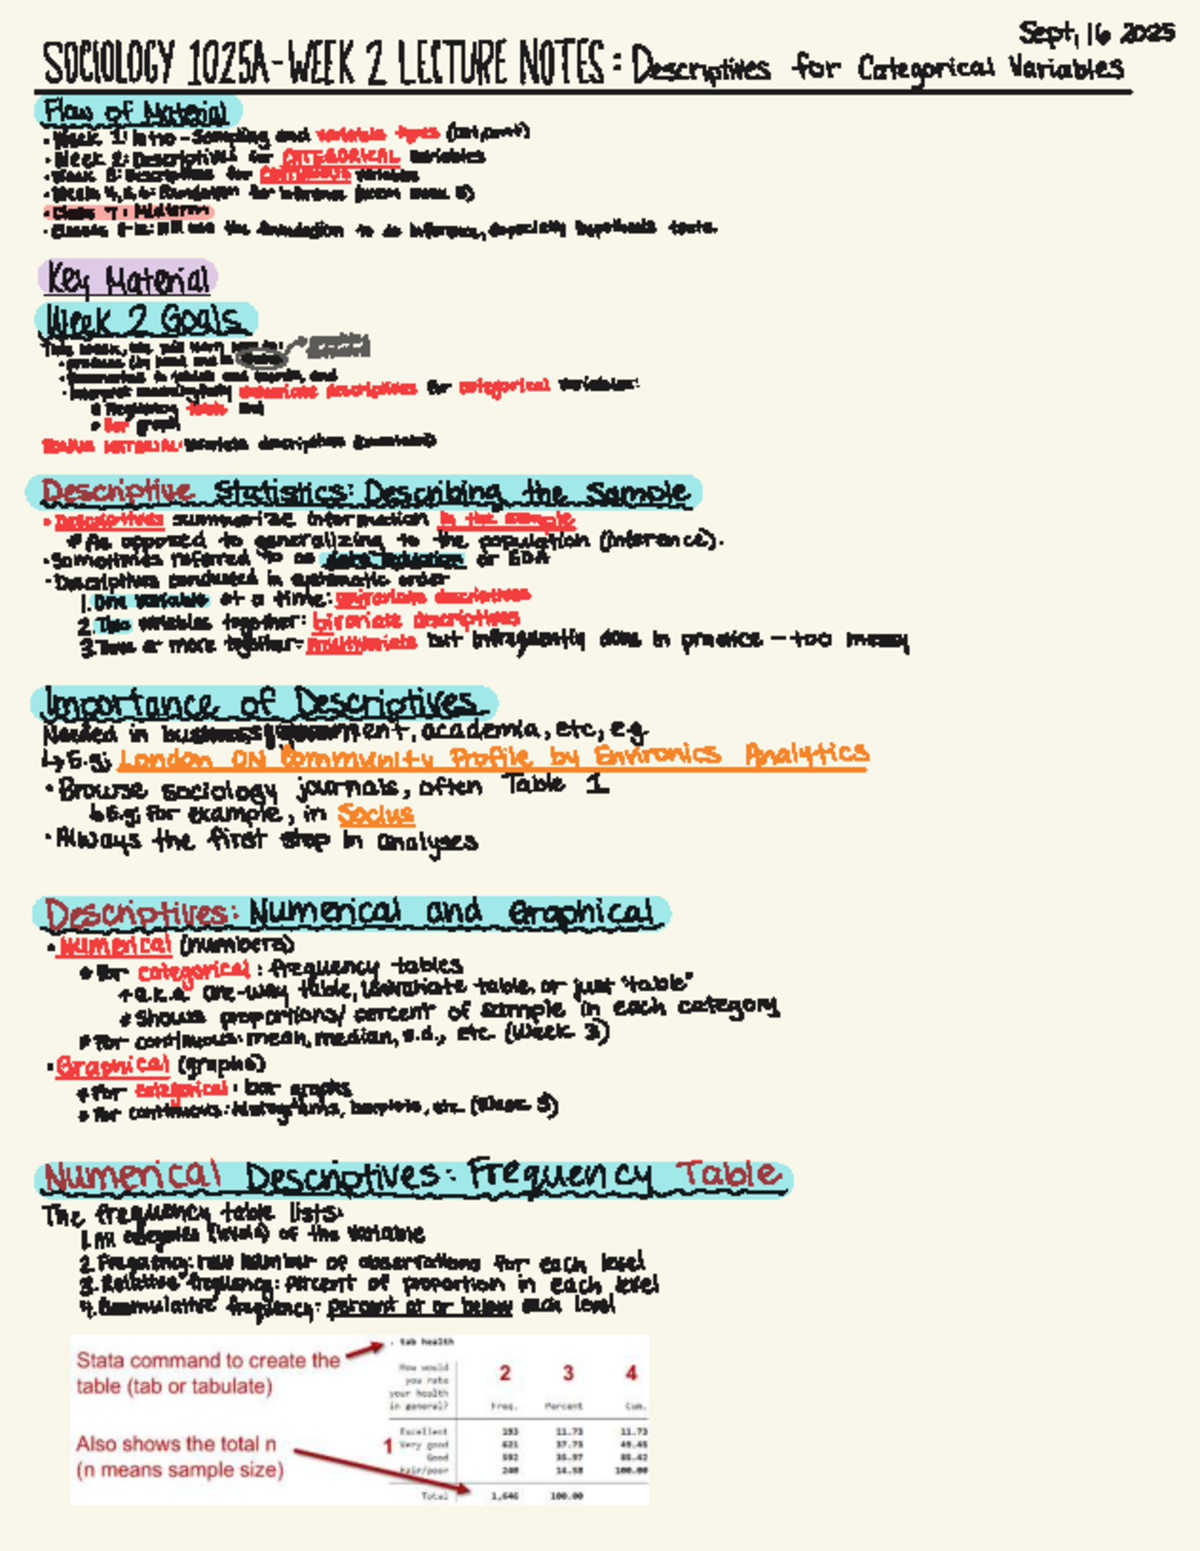 Sept, 16 2025
SOCIOLOGY 1025A-WEEK 2 LECTURE NOTES: Descriptives for Categorical Variables
Flow of Material
• Week 1: Intro - Sampling and variable types
• Week 2: Descriptives for CATEGORICAL variables
• Week 3: Descriptives for CONTINUOUS variables
• Weeks 4,5,6: Foundation for inference
• Class 7: Midterm
use the foundation to do inference, especially hypothesis tests.
Key Material
Week 2 Goals
This week, we will learn how to:
• produce
• Summarize in tables and words, and
• Interpret meaningfully univariate descriptives for categorical variables:
• Frequency table and
• Bar graph
BONUS MATERIAL: bivariate descriptives
Descriptive Statistics: Describing the Sample
• Descriptives summarize information in the sample
• As opposed to generalizing to the population (inference).
• Sometimes referred to as data reduction or EDA
• Descriptives conducted in systematic order
1. One variable at a time: univariate descriptives
2. Two variables together: bivariate descriptives
3. Three or more together: multivariate but infrequently done in practice - too messy
Importance of Descriptives
Needed in business, government, academia, etc, e.g.
↳ E.g; London ON Community Profile by Environics Analytics
• Browse sociology journals, often Table 1
↳ E.g; for example, in Socius
• Always the first step in analyses
Descriptives: Numerical and Graphical
• Numerical (numbers)
• For categorical: frequency tables
• a.k.a. one-way table, univariate table, or just "table"
• Shows proportions/percent of sample in each category
• For continuous: mean, median, s.d., etc. (Week 3)
• Graphical (graphs)
• For categorical: bar graphs
• For continuous: histograms, boxplots, etc. (Week 3)
Numerical Descriptives: Frequency Table
The frequency table lists:
1. All categories (levels) of the variable
2. Frequency: raw number of observations for each level
3. Relative frequency: percent of proportion in each level
4. Cummulative frequency: percent at or below each level
. tab health
Stata command to create the
table (tab or tabulate)
How would
you rate
your health
in general?
2 3 4
Freq. Percent Cum.
Also shows the total n
(n means sample size)
1
Excellent 193 11.73 11.73
Very good 621 37.73 49.45
Good 592 35.97 85.42
Fair/poor 240 14.58 100.00
Total 1,646 100.00